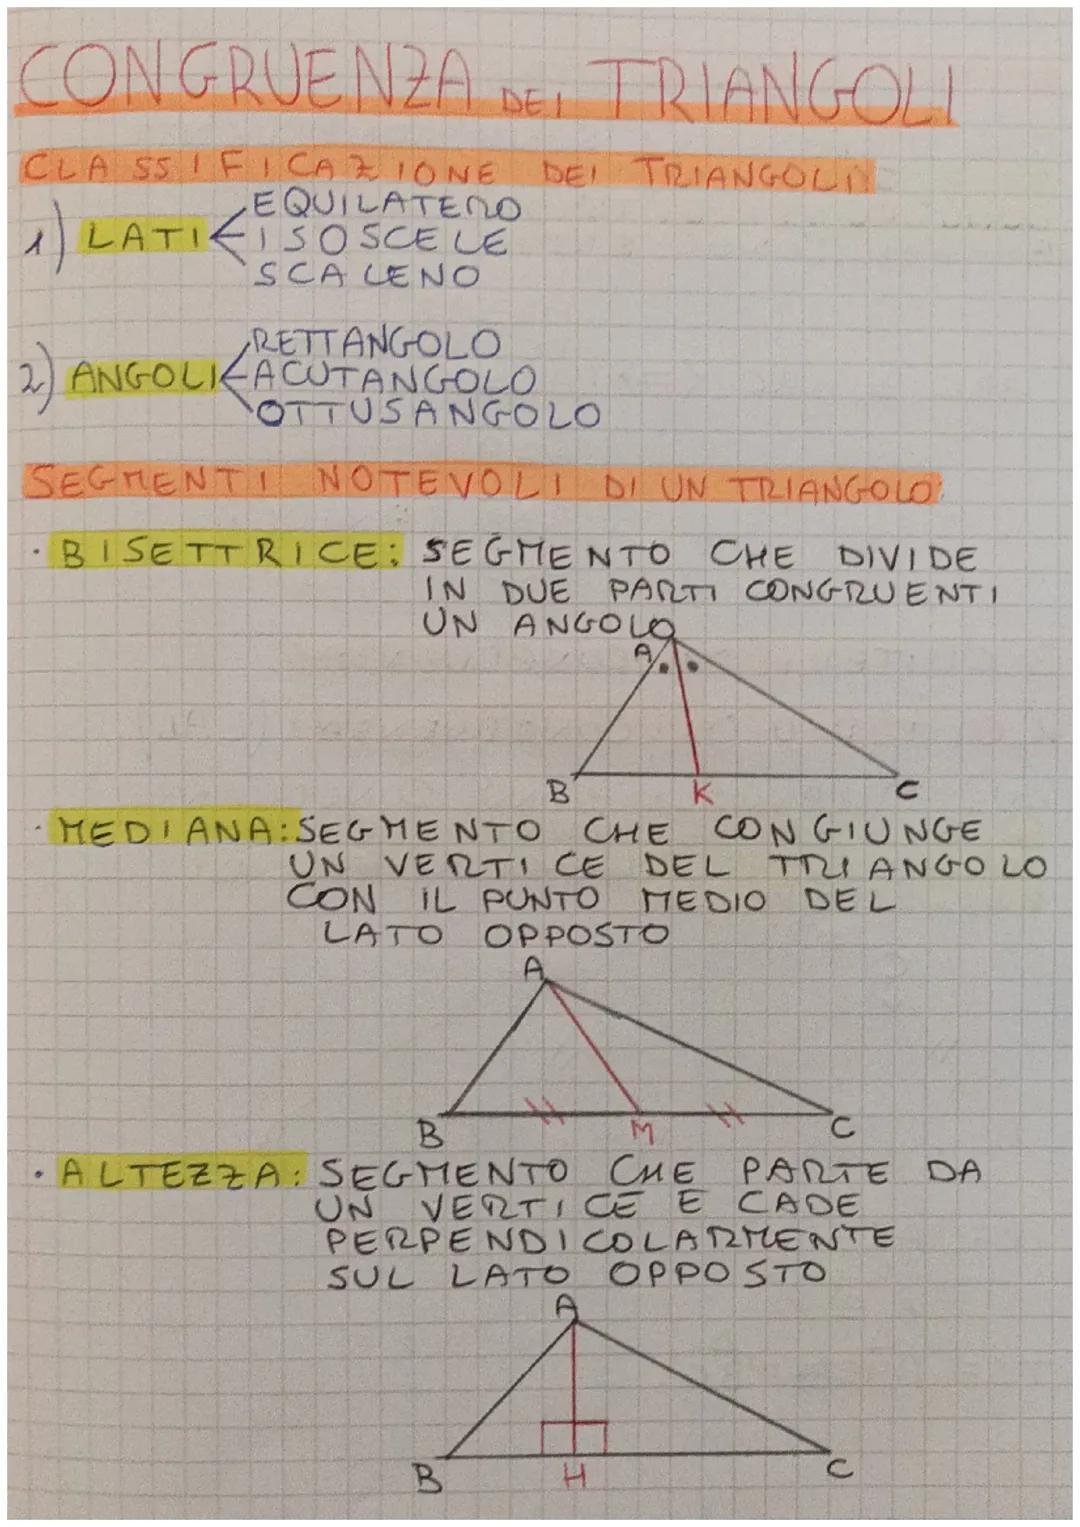 CONGRUENZA DEI TRIANGOLI
CLASSIFICAZIONE DEI TRIANGOLI
1) LATI
EQUILATERO
ISOSCELE
SCALENO
2) ANGOLI
RETTANGOLO
ACUTANGOLO
OTTUSANGOLO
SEGMENTI NOTEVOLI DI UN TRIANGOLO
· BISETTRICE: SEGMENTO CHE DIVIDE
IN DUE PARTI CONGRUENTI
UN ANGOLO
A
B K C
· MEDIANA: SEGMENTO CHE CONGIUNGE
UN VERTICE DEL TRIANGOLO
CON IL PUNTO MEDIO DEL
LATO OPPOSTO
A
B M C
· ALTEZZA: SEGMENTO CHE PARTE DA
UN VERTICE E CADE
PERPENDICOLARMENTE
SUL LATO OPPOSTO
A
B H C